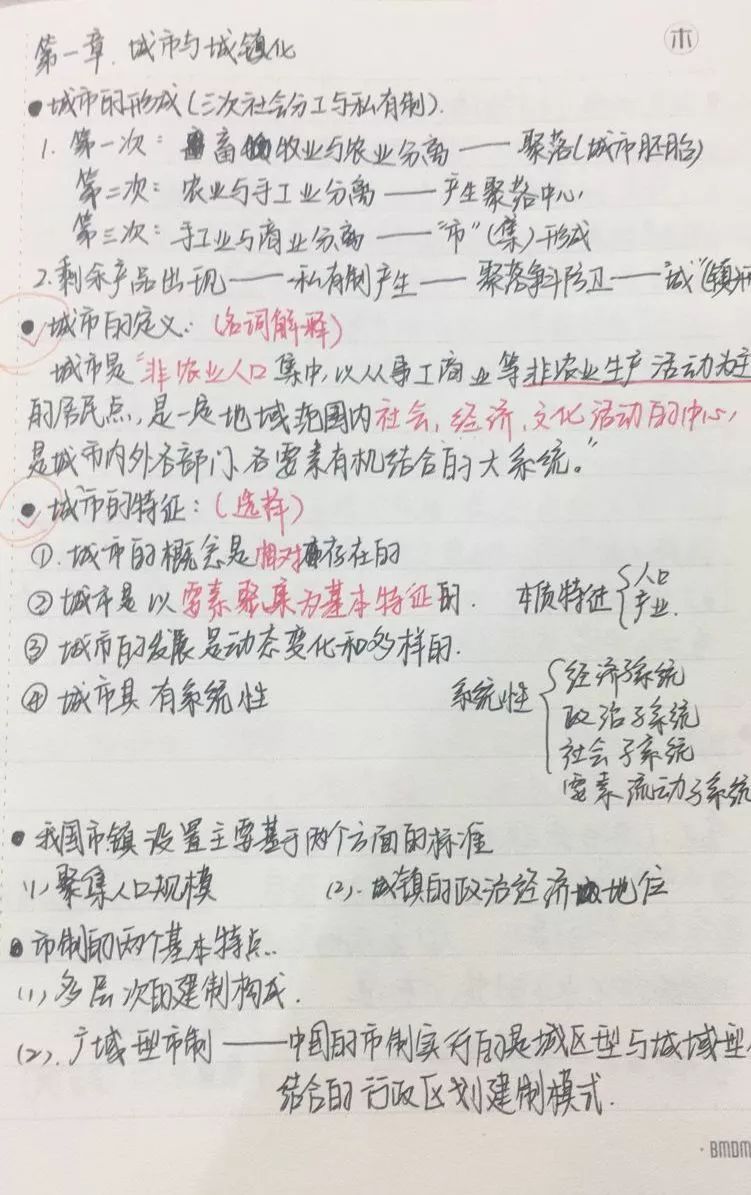 木
第一章. 城市与城镇化
●城市的形成(三次社会分工与私有制).
1. 第一次: 畜牧业与农业分离 —— 聚落(城市胚胎)
第二次: 农业与手工业分离 —— 产生聚落中心
第三次: 手工业与商业分离 —— "市"(集)形成
2. 剩余产品出现 —— 私有制产生 —— 聚落争斗防卫 —— "城"(镇
●城市的定义: (名词解释)
城市是"非农业人口集中,以从事工商业等非农业生产活动为主
的居民点,是一定地域范围内社会,经济,文化活动的中心,
是城市内外各部门、各要素有机结合的大系统。"
●城市的特征: (选择)
①. 城市的概念是相对存在的
② 城市是以要素聚集为基本特征的. 本质特征{人口
产业.
③ 城市的发展是动态变化和多样的.
④ 城市具有系统性 系统性{经济子系统
政治子系统
社会子系统
要素流动子系统
●我国市镇设置主要基于两个方面的标准
(1) 聚集人口规模 (2). 城镇的政治经济地位
●市制的两个基本特点.
(1) 多层次的建制构成.
(2). 广域型市制 —— 中国的市制实行的是城区型与城域型
结合的行政区划建制模式.
·BMDM